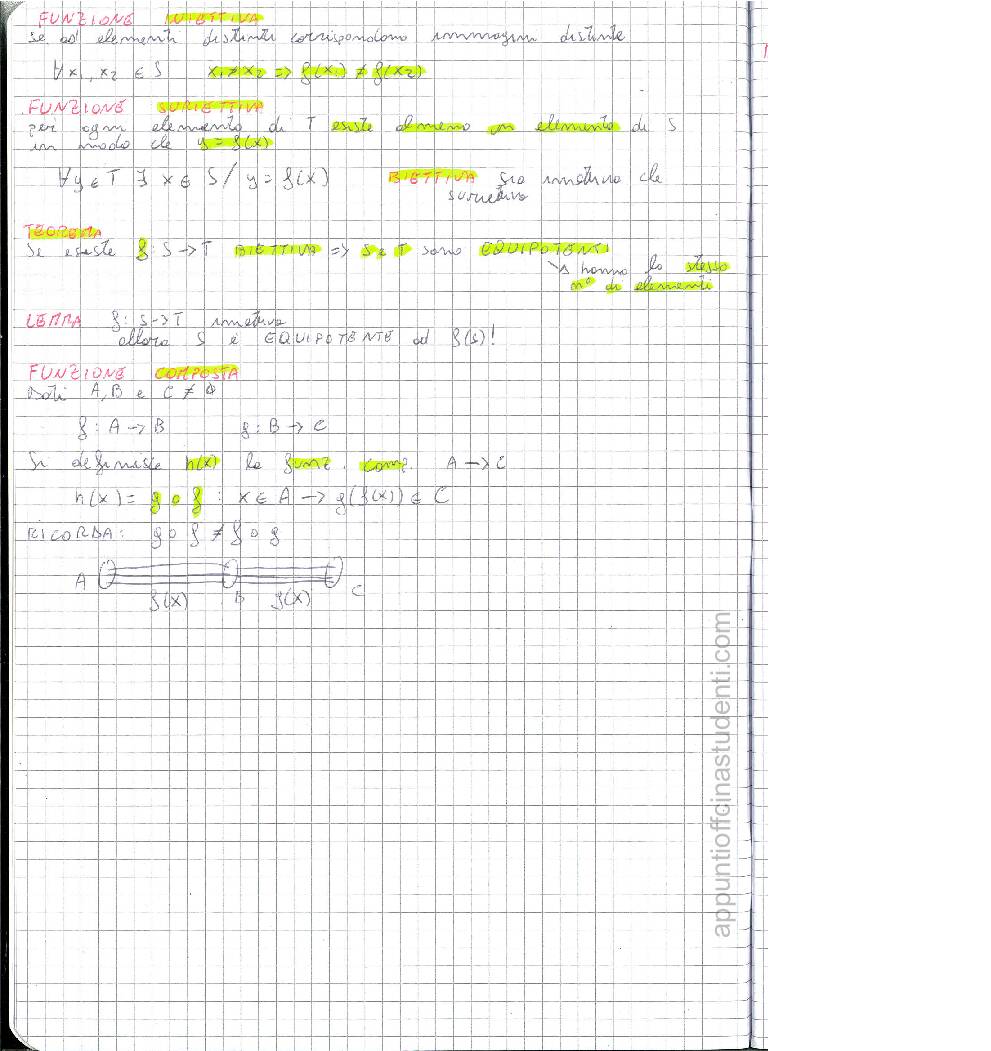 FUNZIONE INIETTIVA
se ad elementi distinti corrispondono immagini distinte
∀x₁, x₂ ∈ S x₁ ≠ x₂ => f(x₁) ≠ f(x₂)
FUNZIONE SURIETTIVA
per ogni elemento di T esiste almeno un elemento di S
in modo che y = f(x)
∀y ∈ T ∃ x ∈ S / y = f(x) BIETTIVA sia iniettiva che
suriettiva
TEOREMA
Se esiste f: S → T BIETTIVA => S e T sono EQUIPOTENTI
↳ hanno lo stesso
n° di elementi
LEMMA f: S → T iniettiva
allora S è EQUIPOTENTE ad f(S)!
FUNZIONE COMPOSTA
Dati A, B e C ≠ ∅
f: A → B g: B → C
Si definisce h(x) la funz. comp. A → C
h(x) = g o f : x ∈ A → g(f(x)) ∈ C
RICORDA: g o f ≠ f o g
A B C
f(x) g(x)
appuntioffcinastudenti.com